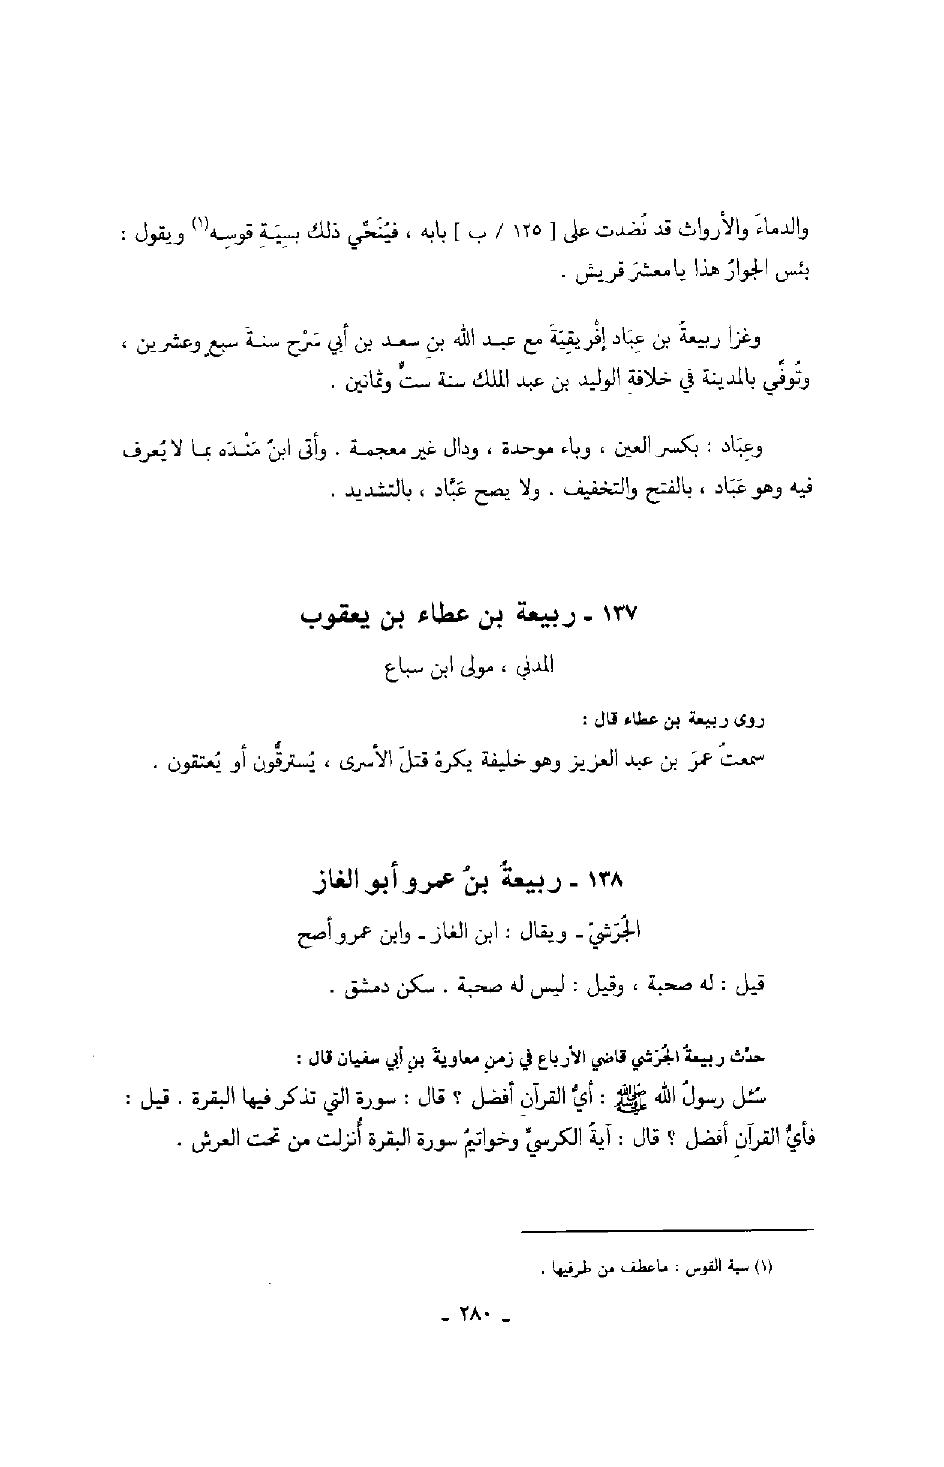 والدماءَ والأرواث قد نُضدت على [ ١٢٥ / ب ] بابه ، فيُنَحِّي ذلك بسِيَةِ قوسِه(١) ويقول :
بئس الجوارُ هذا يا معشرَ قريش .
وغزا ربيعةُ بن عِبَاد إفْريقِيَّةَ مع عبد الله بنِ سعد بن أبي سَرْح سنةَ سبعٍ وعشرين ،
وتُوفِّي بالمدينة في خلافةِ الوليد بن عبد الملك سنة ستٍّ وثمانين .
وعِبَاد : بكسر العين ، وباء موحدة ، ودال غير معجمة . وأتى ابنُ مَنْدَه بما لا يُعرف
فيه وهو عَبَاد ، بالفتح والتخفيف . ولا يصح عَبَّاد ، بالتشديد .
١٣٧ - ربيعة بن عطاء بن يعقوب
المدني ، مولى ابن سباع
روى ربيعة بن عطاء قال :
سمعتُ عمرَ بن عبد العزيز وهو خليفة يكرهُ قتلَ الأسرى ، يُسترقُّون أو يُعتقون .
١٣٨ - ربيعةُ بنُ عمرو أبو الغاز
الجُرَشيّ - ويقال : ابن الغاز - وابن عمرو أصح
قيل : له صحبة ، وقيل : ليس له صحبة . سكن دمشق .
حدَّث ربيعةُ الجُرَشي قاضي الأرباع في زمنِ معاويةَ بنِ أبي سفيان قال :
سُئل رسولُ الله ﷺ : أيُّ القرآنِ أفضل ؟ قال : سورة التي تذكر فيها البقرة . قيل :
فأيُّ القرآنِ أفضل ؟ قال : آيةُ الكرسيِّ وخواتيمُ سورة البقرة أُنزلت من تحت العرش .
(١) سية القوس : ما عطف من طرفيها .
- ٢٨٠ -